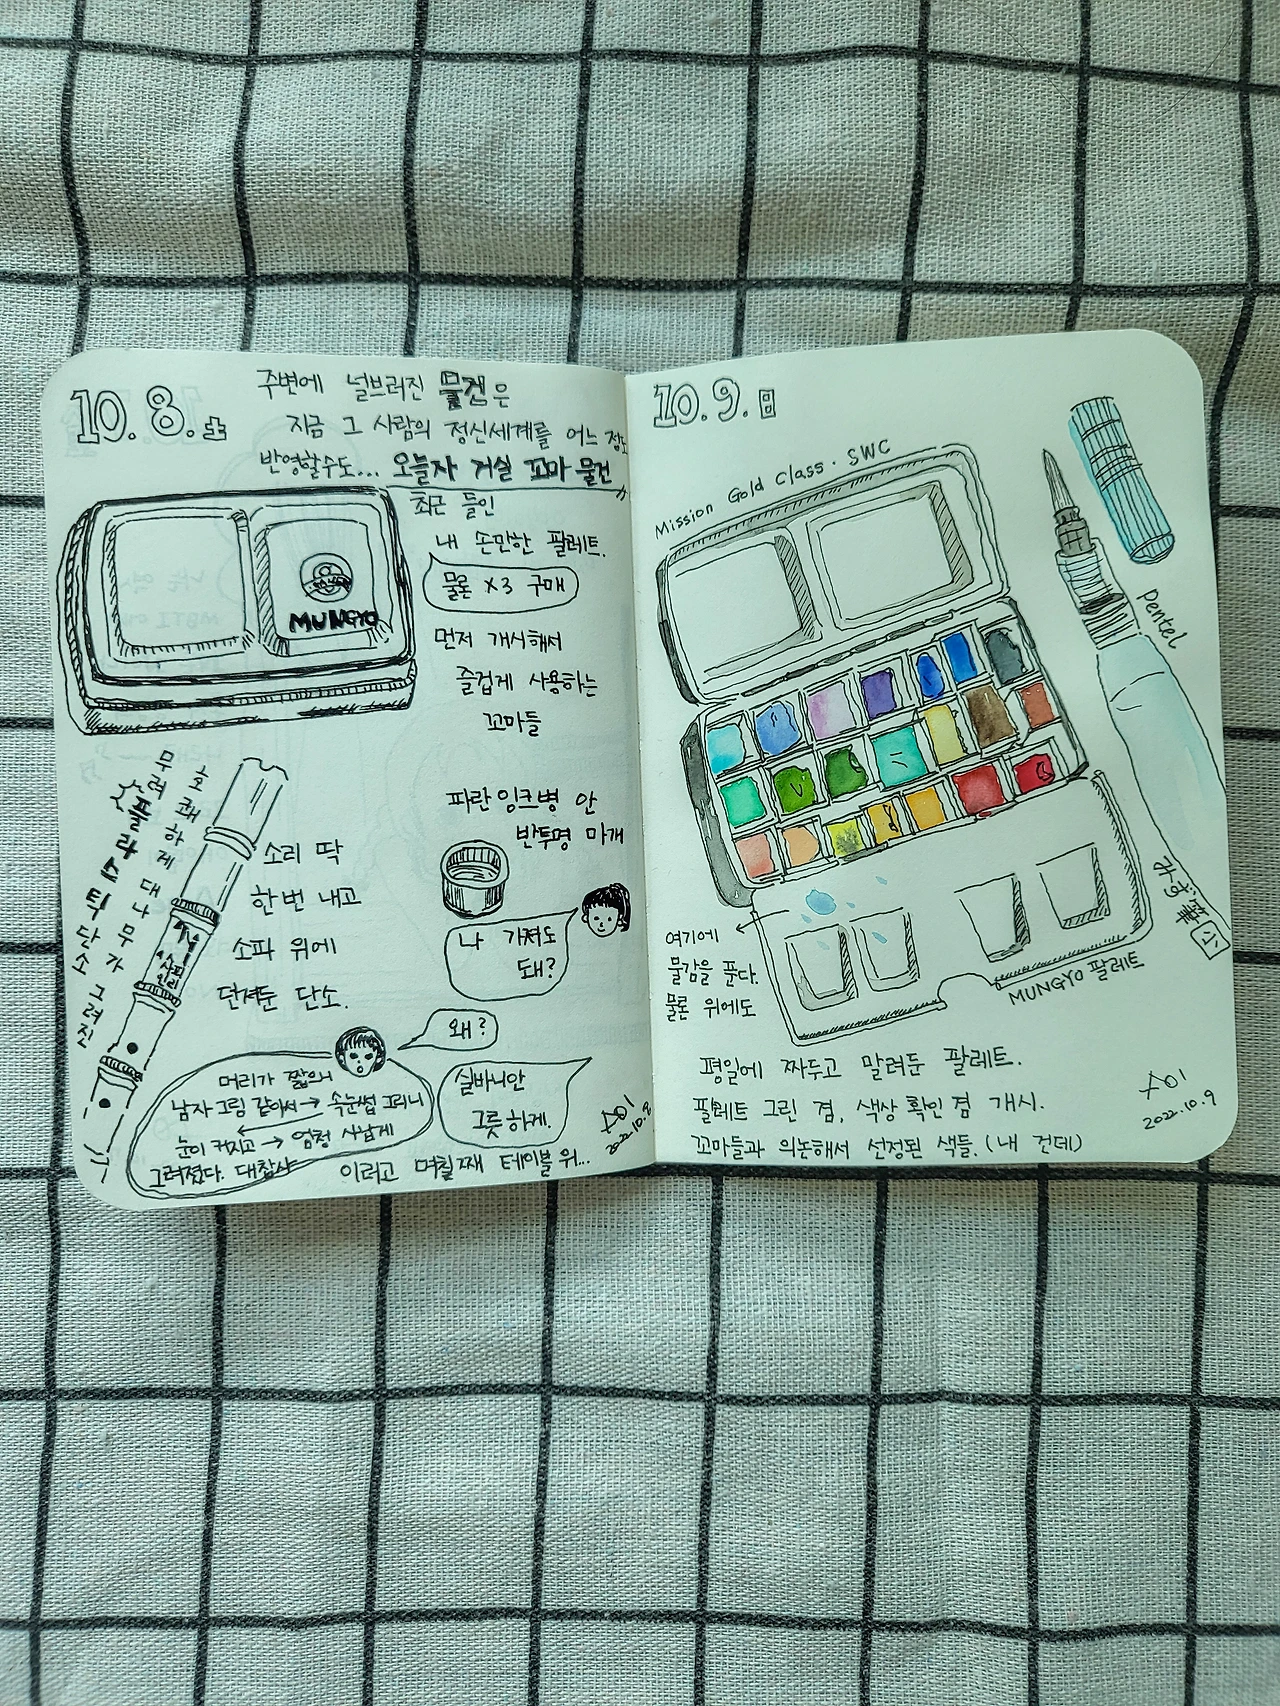 10. 8. 土
주변에 널브러진 물건은
지금 그 사람의 정신세계를 어느 정도
반영할수도... 오늘자 거실 꼬마 물건
최근 들인
내 손만한 팔레트.
물론 x3 구매
먼저 개시해서
즐겁게 사용하는
꼬마들
MUNGYO
파란 잉크병 안
반투명 마개
나 가져도
돼?
왜?
실바니안
그릇하게.
호쾌하게 대나무가
무려 플라스틱 단소 그려진
소리 딱
한번 내고
소파 위에
던져둔 단소.
머리가 짧으니
남자 그림 같아서→ 속눈썹 그리니
눈이 커지고→ 엄청 사납게
그려졌다. 대참사
이러고 며칠째 테이블 위...
2022.10.8
10. 9. 日
Mission Gold Class · SWC
Pentel
小
여기에
물감을 푼다.
물론 위에도
MUNGYO 팔레트
평일에 짜두고 말려둔 팔레트.
팔레트 그린 겸, 색상 확인 겸 개시.
꼬마들과 의논해서 선정된 색들. (내 건데)
2022.10.9